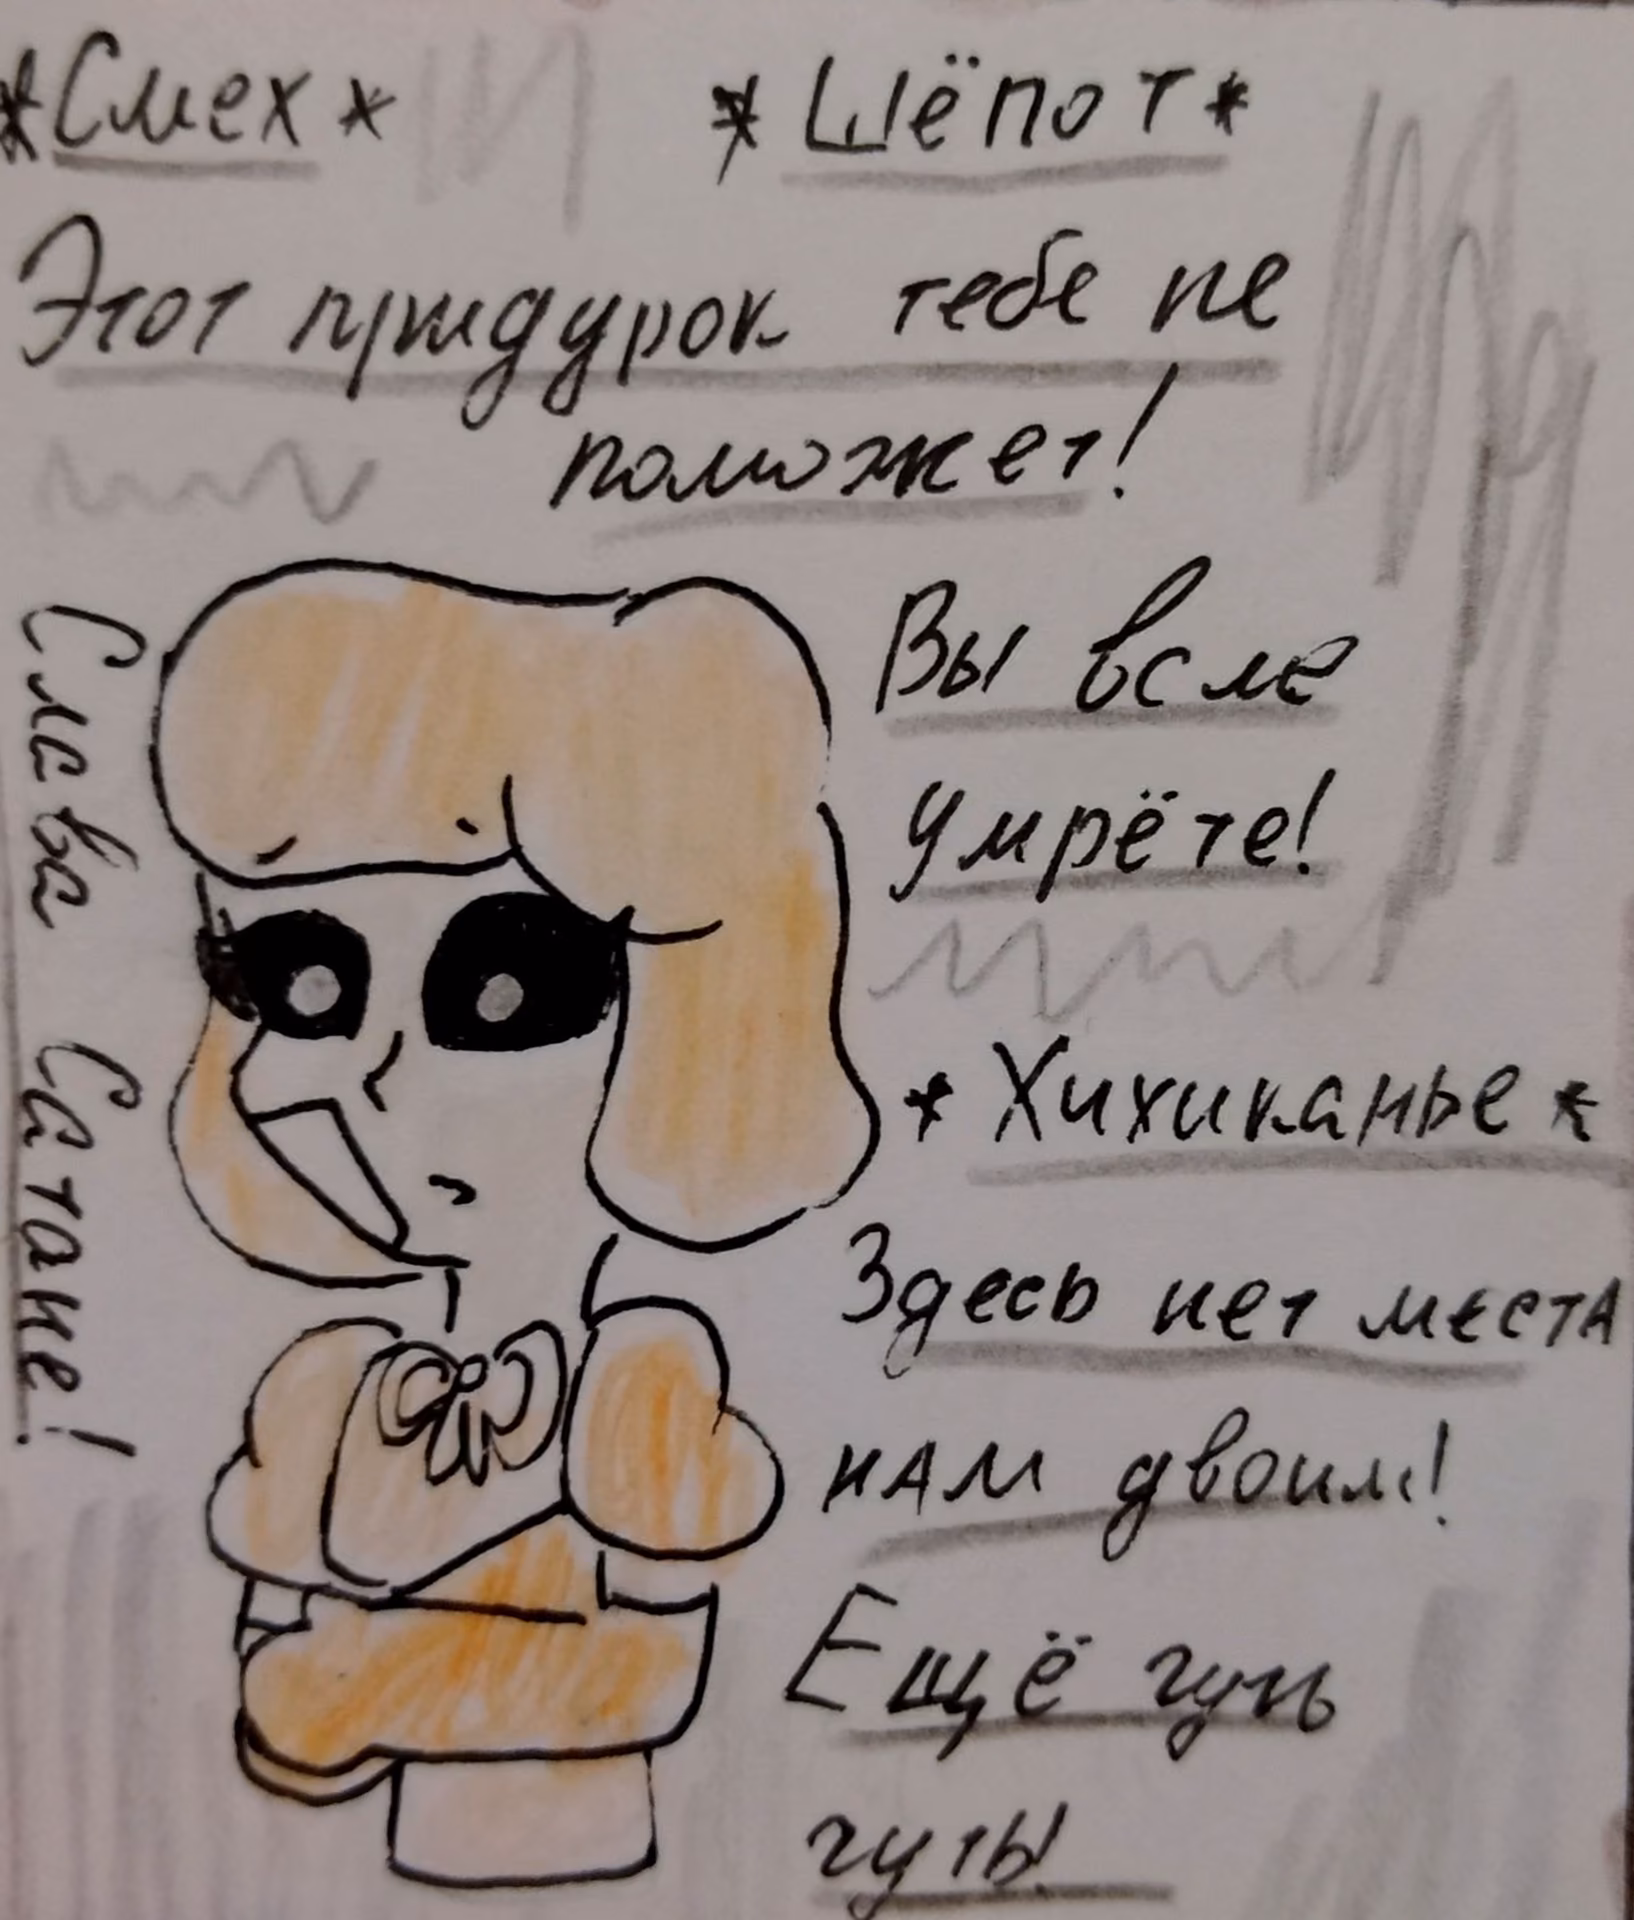 *Смех*
*Шёпот*
Этот придурок тебе не
поможет!
Слава Сатане!
Вы все
умрёте!
*Хихиканье*
Здесь нет местА
нАм двоим!
Ещё чуть
чуть!